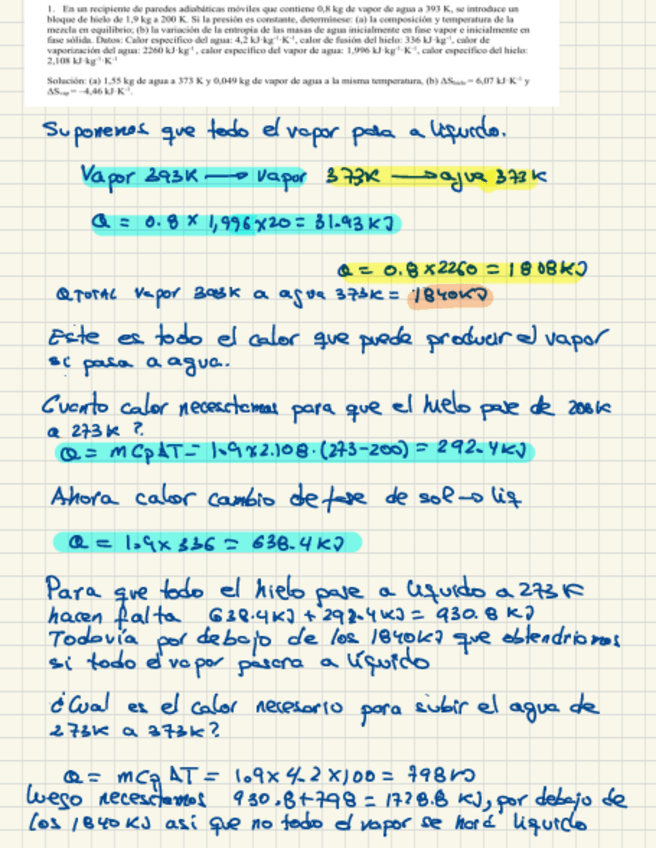 1. En un recipiente de paredes adiabáticas móviles que contiene 0,8 kg de vapor de agua a 393 K, se introduce un
bloque de hielo de 1,9 kg a 200 K. Si la presión es constante, determínese: (a) la composición y temperatura de la
mezcla en equilibrio; (b) la variación de la entropía de las masas de agua inicialmente en fase vapor e inicialmente en
fase sólida. Datos: Calor específico del agua: 4,2 kJ·kg⁻¹·K⁻¹, calor de fusión del hielo: 336 kJ·kg⁻¹, calor de
vaporización del agua: 2260 kJ·kg⁻¹, calor específico del vapor de agua: 1,996 kJ·kg⁻¹·K⁻¹, calor específico del hielo:
2,108 kJ·kg⁻¹·K⁻¹
Solución: (a) 1,55 kg de agua a 373 K y 0,049 kg de vapor de agua a la misma temperatura, (b) ΔS = 6,07 kJ·K⁻¹ y
ΔS = -4,46 kJ·K⁻¹.
Suponemos que todo el vapor pasa a líquido.
Vapor 393K → vapor 373K → agua 373K
Q = 0.8 × 1,996 × 20 = 31.93 KJ
Q = 0.8 × 2260 = 1808 KJ
Q TOTAL vapor 393K a agua 373K = 1840KJ
Este es todo el calor que puede producir el vapor
si pasa a agua.
Cuanto calor necesitamos para que el hielo pase de 200K
a 273K?
Q = mCpΔT = 1.9 × 2.108 · (273-200) = 292.4KJ
Ahora calor cambio de fase de sol → liq
Q = 1.9 × 336 = 638.4 KJ
Para que todo el hielo pase a líquido a 273 K
hacen falta 638.4KJ + 292.4KJ = 930.8 KJ
Todavía por debajo de los 1840KJ que obtendríamos
si todo el vapor pasara a líquido
¿Cual es el calor necesario para subir el agua de
273K a 373K?
Q = mCp ΔT = 1.9 × 4.2 × 100 = 798 KJ
Luego necesitamos 930.8+798 = 1728.8 KJ, por debajo de
los 1840 KJ así que no todo el vapor se hará líquido